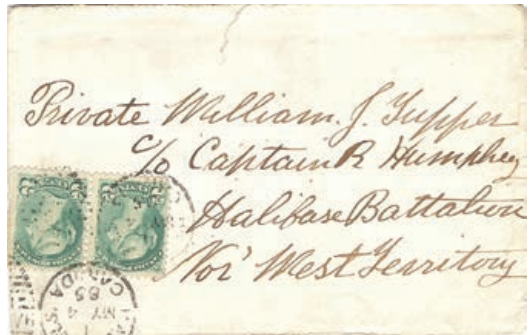 Private William J. Tupper
c/o Captain R Humphey
Halibase Battalion
Nor' West Territory
MY 4
85
CANADA